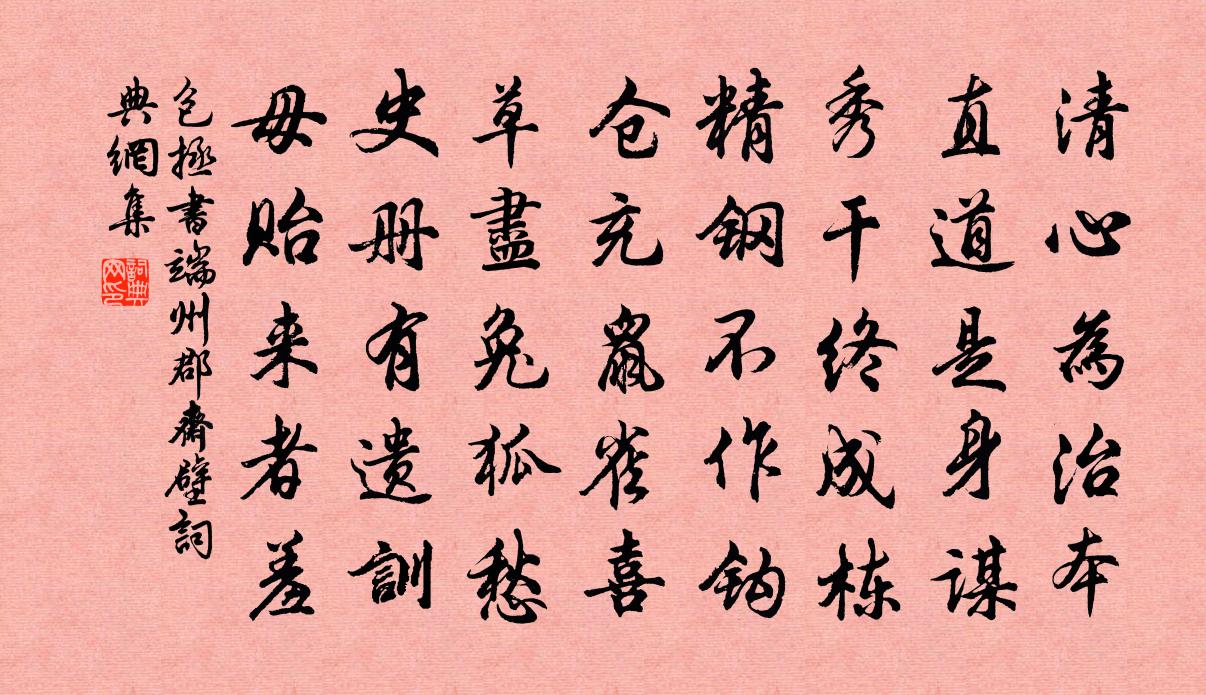 清心為治本
直道是身謀
秀干终成栋
精钢不作钩
仓充鼠雀喜
草盡兔狐愁
史册有遗訓
毋贻来者羞
包拯書端州郡齋壁詞
典網集
詞典
网印